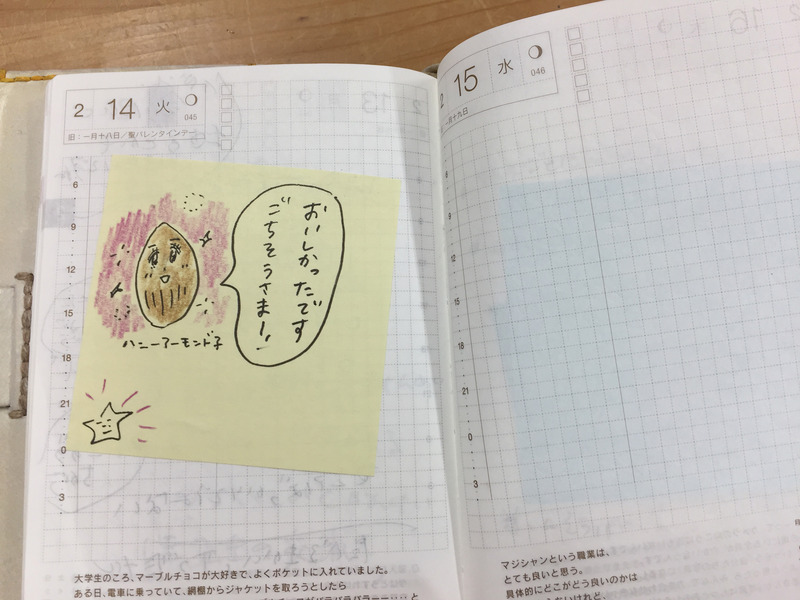 2 14 火
045
旧:一月十八日/聖バレンタインデー
6
9
12
15
18
21
0
3
おいしかったです
ごちそうさまー!
ハニーアーモンド子
大学生のころ、マーブルチョコが大好きで、よくポケットに入れていました。
ある日、電車に乗っていて、網棚からジャケットを取ろうとしたら
2 15 水
046
一月十九日
6
9
12
15
18
21
0
3
マジシャンという職業は、
とても良いと思う。
具体的にどこがどう良いのかは